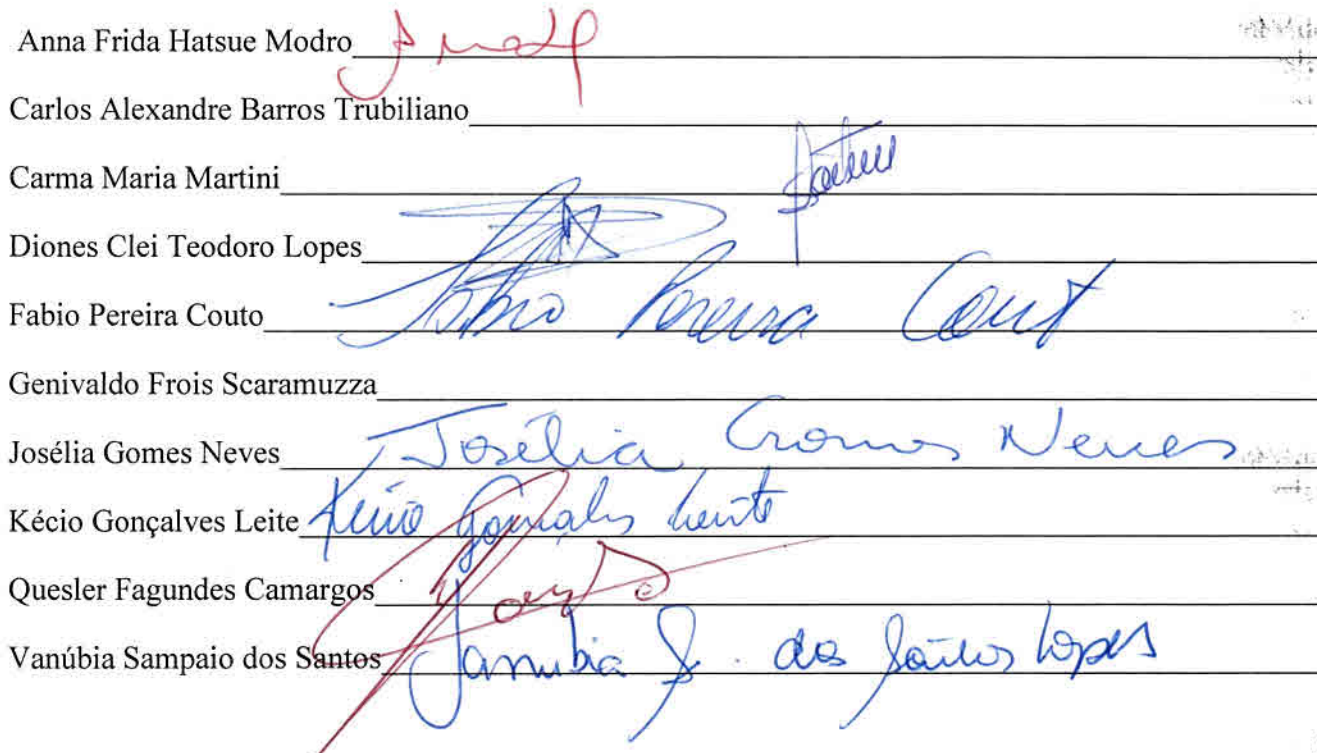 Anna Frida Hatsue Modro
Carlos Alexandre Barros Trubiliano
Carma Maria Martini
Diones Clei Teodoro Lopes
Fabio Pereira Couto Fabio Pereira Couto
Genivaldo Frois Scaramuzza
Josélia Gomes Neves Josélia Gomes Neves
Kécio Gonçalves Leite Kécio Gonçalves Leite
Quesler Fagundes Camargos
Vanúbia Sampaio dos Santos Vanubia S. dos Santos Lopes